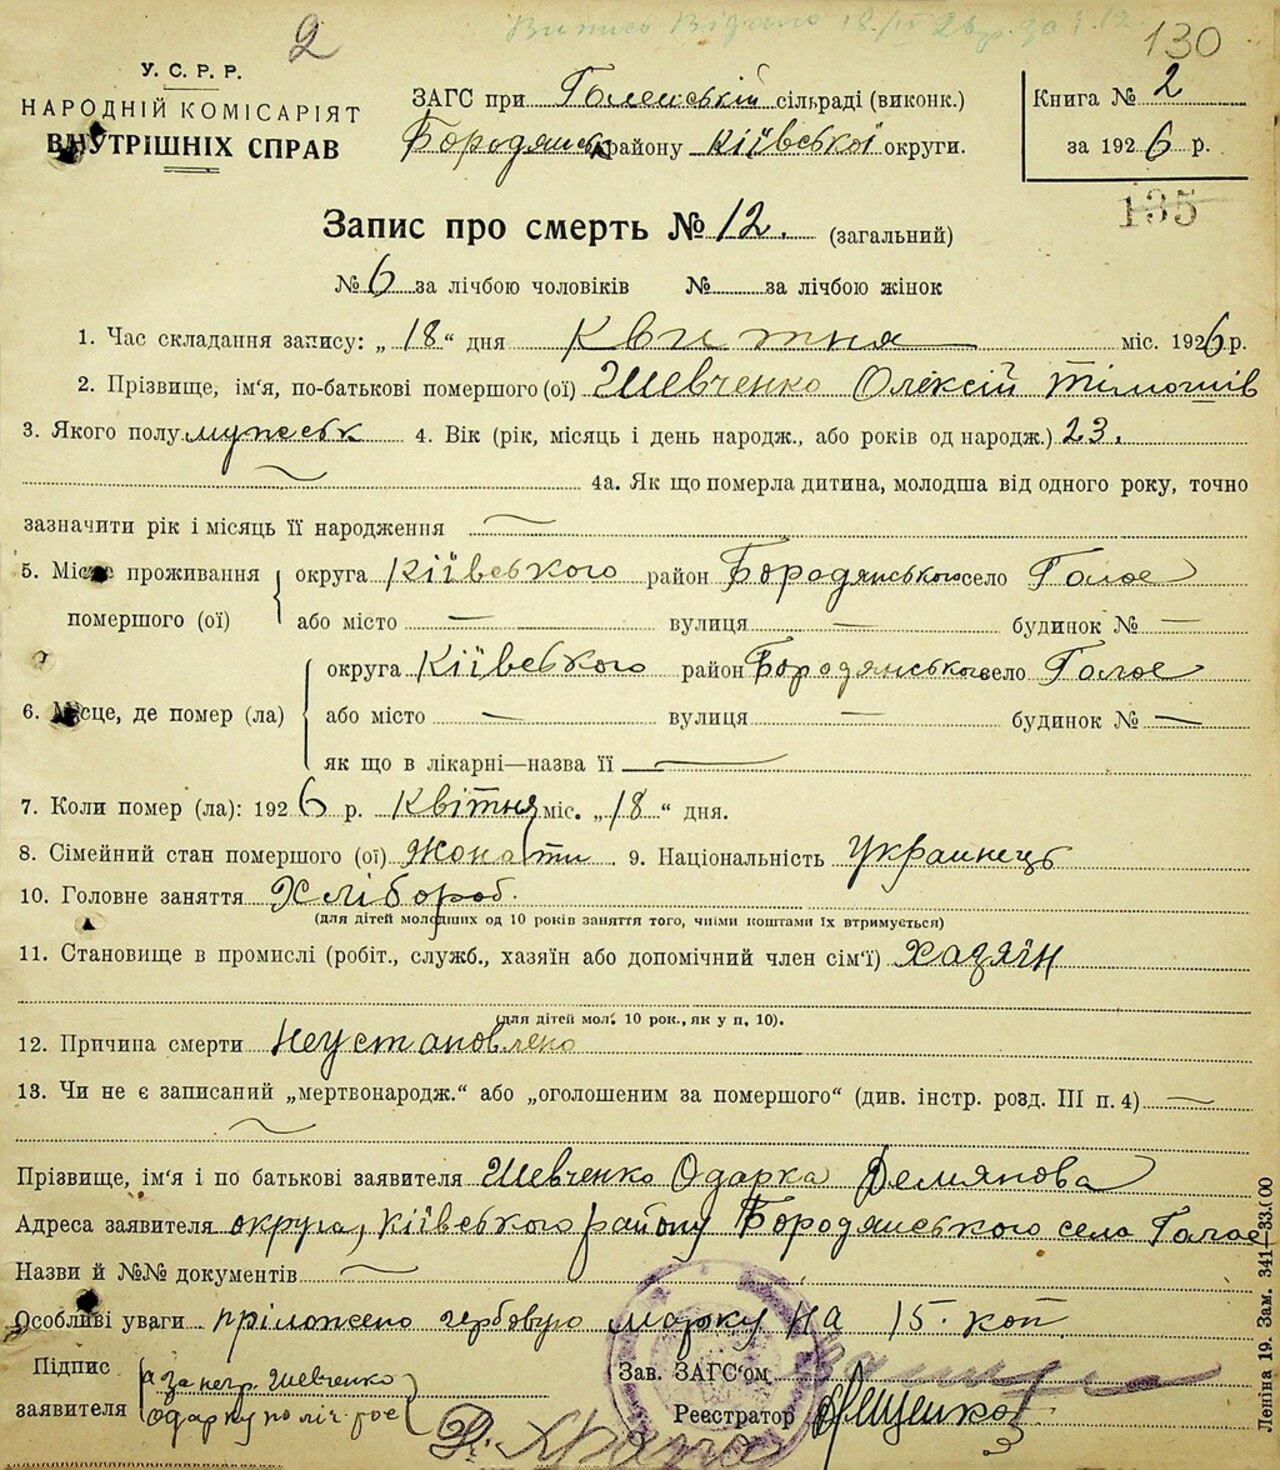 2
Випись Видано 18/IV 26 р. за № 12
130
У. С. Р. Р.
НАРОДНІЙ КОМІСАРІЯТ
ВНУТРІШНІХ СПРАВ
ЗАГС при Галенській сільраді (виконк.)
Бородянськ району Кіївської округи.
Книга № 2
за 1926 р.
135
Запис про смерть № 12. (загальний)
№ 6 за лічбою чоловіків № за лічбою жінок
1. Час складання запису: „18“ дня Квитня міс. 1926 р.
2. Прізвище, ім‘я, по-батькові помершого (ої) Шевченко Олексій Тімошів
3. Якого полу мужеськ 4. Вік (рік, місяць і день народж., або років од народж.) 23.
4а. Як що померла дитина, молодша від одного року, точно
зазначити рік і місяць її народження —
5. Місце проживання помершого (ої) округа Кіївського район Бородянського село Галое
або місто — вулиця — будинок № —
6. Місце, де помер (ла) округа Кіївського район Бородянського село Галое
або місто — вулиця — будинок № —
як що в лікарні—назва її —
7. Коли помер (ла): 1926 р. Квітня міс. „18“ дня.
8. Сімейний стан помершого (ої) Жонати 9. Національність Украинець
10. Головне заняття Хлібороб.
(для дітей молодших од 10 років заняття того, чиїми коштами їх втримується)
11. Становище в промислі (робіт., служб., хазяїн або допомічний член сім‘ї) Хазяїн
(для дітей мол. 10 рок., як у п. 10).
12. Причина смерти Неустановлено
13. Чи не є записаний „мертвонародж.“ або „оголошеним за помершого“ (див. інстр. розд. III п. 4) —
Прізвище, ім‘я і по батькові заявителя Шевченко Одарка Демянова
Адреса заявителя округа, Кіївського району Бородянського села Галое
Назви й №№ документів —
Особливі уваги пріложено гербовую марку на 15. коп
Підпис заявителя а за негр. Шевченко
Одарку
Зав. ЗАГС‘ом
Реестратор Лещенко
Леніна 19. Зам. 341—33.000